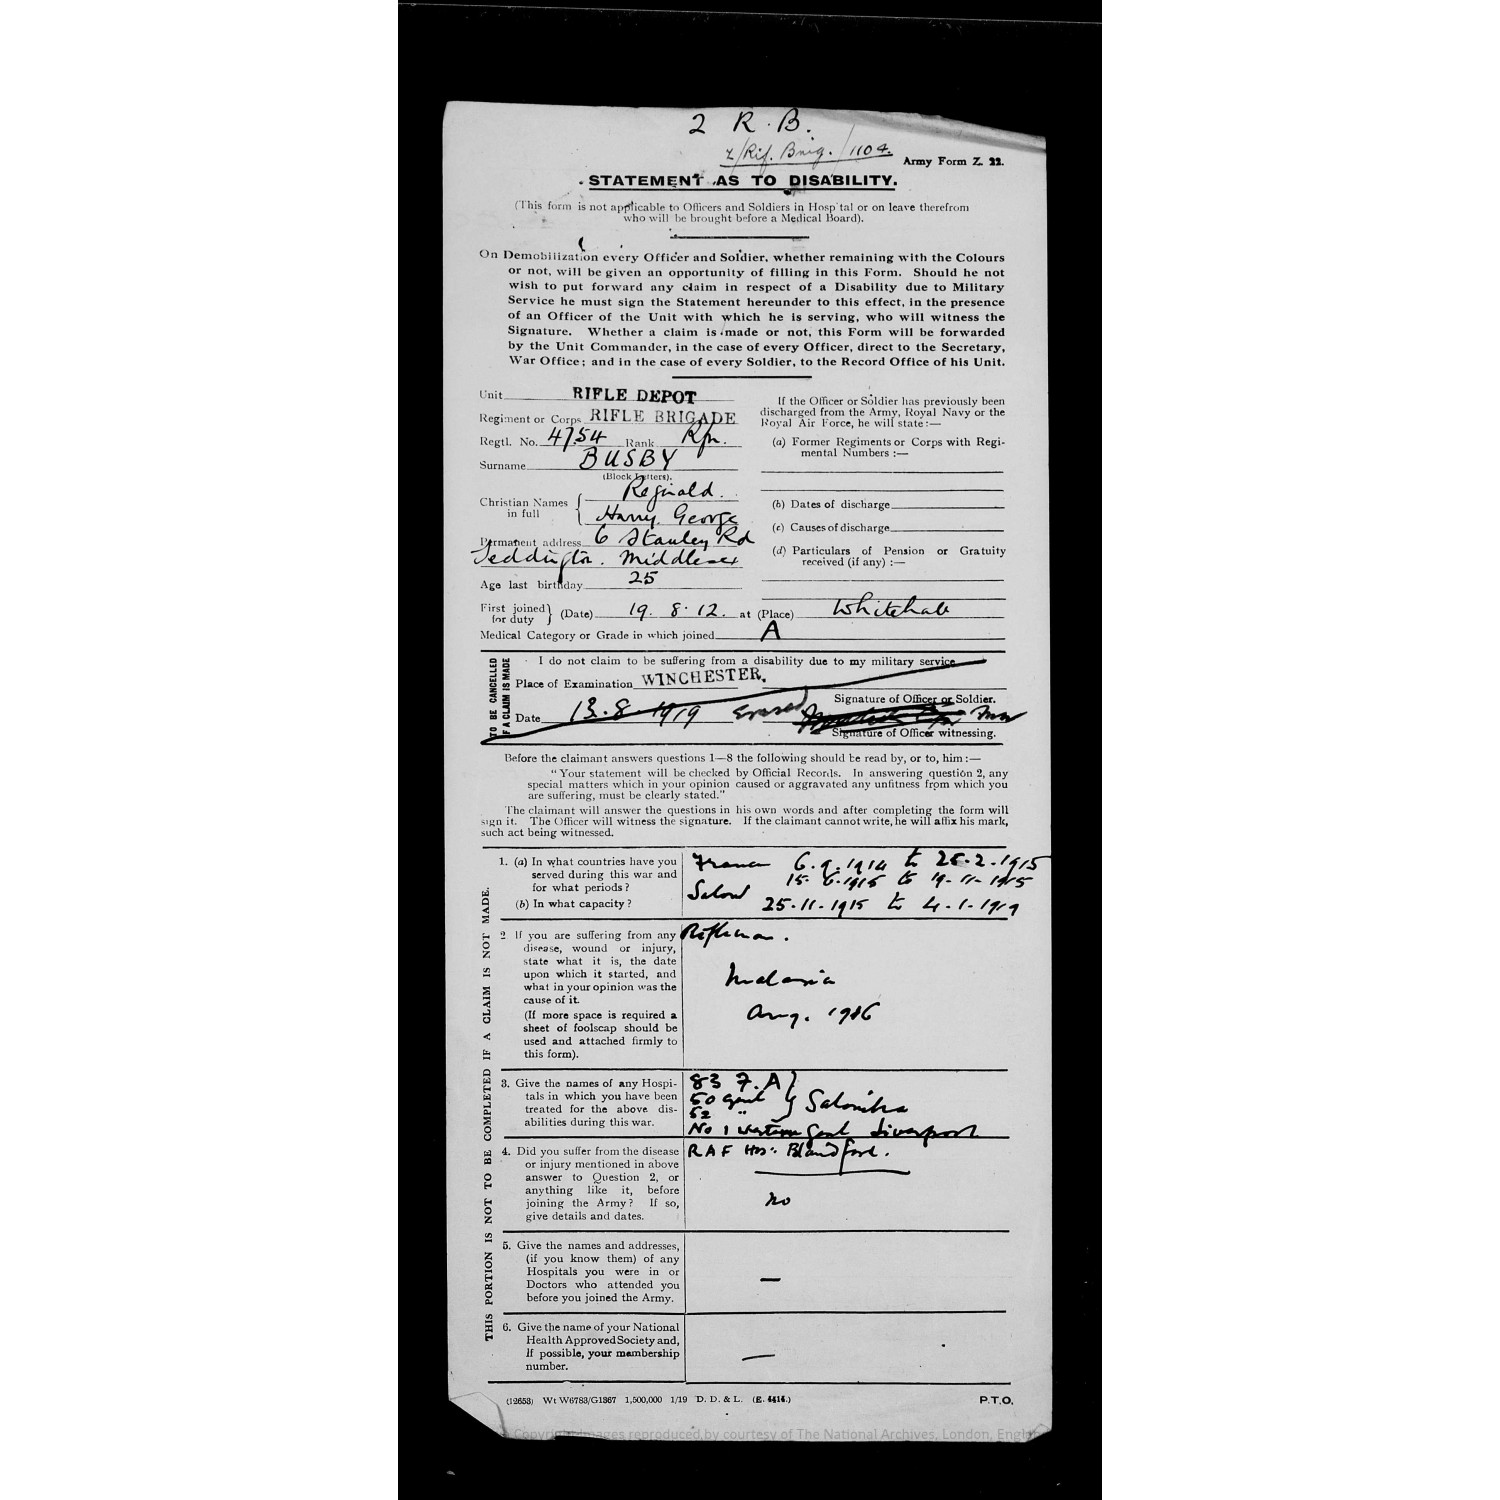 2 R.B.
Z/Rif. Brig./1104.
Army Form Z. 22.
STATEMENT AS TO DISABILITY.
(This form is not applicable to Officers and Soldiers in Hospital or on leave therefrom
who will be brought before a Medical Board).
On Demobilization every Officer and Soldier, whether remaining with the Colours
or not, will be given an opportunity of filling in this Form. Should he not
wish to put forward any claim in respect of a Disability due to Military
Service he must sign the Statement hereunder to this effect, in the presence
of an Officer of the Unit with which he is serving, who will witness the
Signature. Whether a claim is made or not, this Form will be forwarded
by the Unit Commander, in the case of every Officer, direct to the Secretary,
War Office; and in the case of every Soldier, to the Record Office of his Unit.
Unit RIFLE DEPOT
Regiment or Corps RIFLE BRIGADE
Regtl. No. 4754 Rank Rfn.
Surname BUSBY
(Block Letters).
Christian Names in full Reginald.
Harry George
Permanent address 6 Stanley Rd
Teddington. Middlesex
Age last birthday 25
If the Officer or Soldier has previously been
discharged from the Army, Royal Navy or the
Royal Air Force, he will state:—
(a) Former Regiments or Corps with Regi-
mental Numbers :—
(b) Dates of discharge
(c) Causes of discharge
(d) Particulars of Pension or Gratuity
received (if any) :—
First joined for duty } (Date) 19. 8. 12. at (Place) Whitehall
Medical Category or Grade in which joined A
TO BE CANCELLED
IF A CLAIM IS MADE
I do not claim to be suffering from a disability due to my military service
Place of Examination WINCHESTER.
Signature of Officer or Soldier.
Date 13.8.1919 Erased
Signature of Officer witnessing.
Before the claimant answers questions 1—8 the following should be read by, or to, him :—
"Your statement will be checked by Official Records. In answering question 2, any
special matters which in your opinion caused or aggravated any unfitness from which you
are suffering, must be clearly stated."
The claimant will answer the questions in his own words and after completing the form will
sign it. The Officer will witness the signature. If the claimant cannot write, he will affix his mark,
such act being witnessed.
THIS PORTION IS NOT TO BE COMPLETED IF A CLAIM IS NOT MADE.
1. (a) In what countries have you
served during this war and
for what periods?
(b) In what capacity?
France 6.9.1914 to 25.2.1915
15.6.1915 to 19-11-1915
25-11-1915 to 4-1-1919
2 If you are suffering from any
disease, wound or injury,
state what it is, the date
upon which it started, and
what in your opinion was the
cause of it.
(If more space is required a
sheet of foolscap should be
used and attached firmly to
this form).
Rifleman.
Malaria
Aug. 1916
3. Give the names of any Hospi-
tals in which you have been
treated for the above dis-
abilities during this war.
83 F.A }
50 Genl } Salonika
52 "
No 1 Western Genl Liverpool
4. Did you suffer from the disease
or injury mentioned in above
answer to Question 2, or
anything like it, before
joining the Army? If so,
give details and dates.
RAF Hos: Blandford.
no
5. Give the names and addresses,
(if you know them) of any
Hospitals you were in or
Doctors who attended you
before you joined the Army.
—
6. Give the name of your National
Health Approved Society and,
If possible, your membership
number.
—
(12653) Wt W6783/G1367 1,500,000 1/19 D. D. & L. (E. 4414.)
P.T.O.
Copyright images reproduced by courtesy of The National Archives, London, England